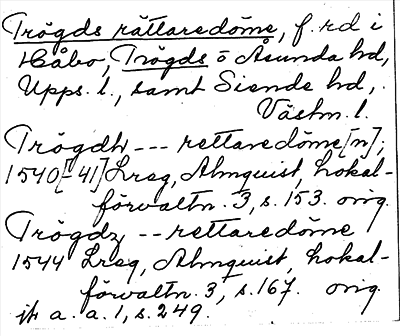 Trögds rättaredöme, f. rd i
Håbo, Trögds o Åsunda hd,
Upps. l., samt Siende hd,
Västm. l.
Trögdh --- rettaredöme[n];
1540[-41] Lreg, Almquist, Lokal-
förvaltn. 3, s. 153. orig.
Trögdz -- rettaredöme
1544 Lreg, Almquist, Lokal-
förvaltn. 3, s. 167. orig.
jfr a. a. 1, s. 249.